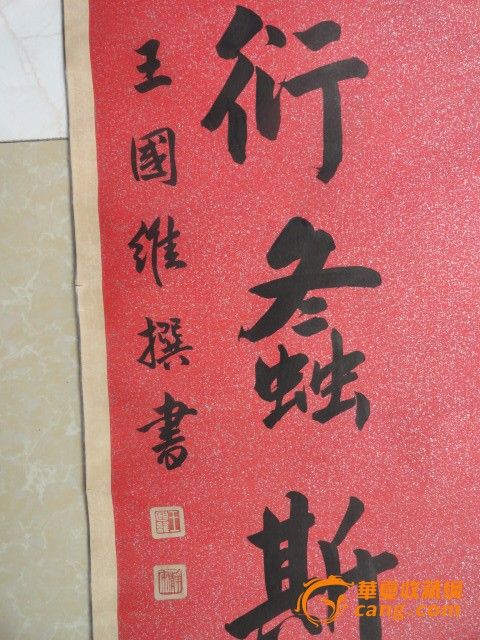 衍螽斯
王國維撰書
華夏收藏網
cang.com